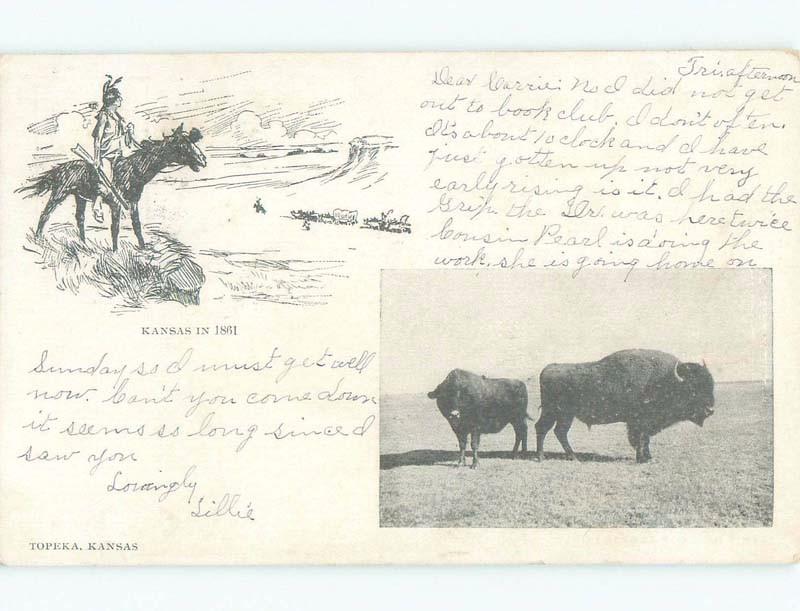 Fri. afternoon
Dear Carrie: No I did not get
out to book club. I don't often.
It's about 1 o clock and I have
just gotten up not very
early rising is it. I had the
Grip. the Dr. was here twice
Cousin Pearl is doing the
work. she is going home on
KANSAS IN 1861
Sunday so I must get well
now. Can't you come down
it seems so long since I
saw you
Lovingly
Lillie
TOPEKA, KANSAS